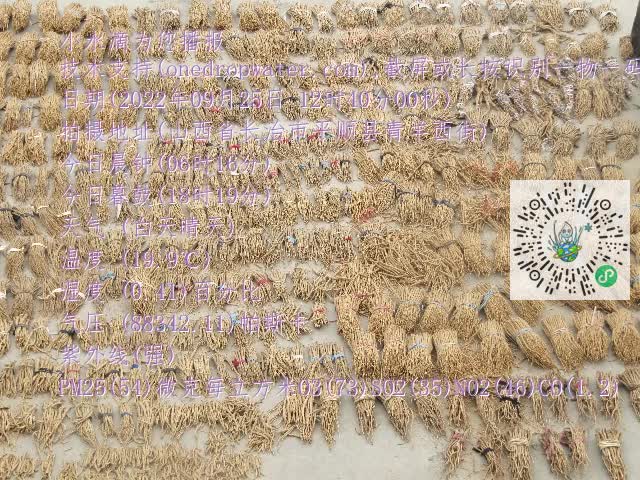 小水滴为您播报
技术支持(onedropwater.com),截屏或长按识别一物一码
日期(2022年09月25日 12时10分00秒)
拍摄地址(山西省长治市平顺县青羊西街)
今日晨钟(06时16分)
今日暮鼓(18时19分)
天气 (白天晴天)
温度 (19.9℃)
湿度 (0.41)百分比
气压 (88342.11)帕斯卡
紫外线(强)
PM25(54)微克每立方米O3(73)SO2(35)NO2(46)CO(1.2)